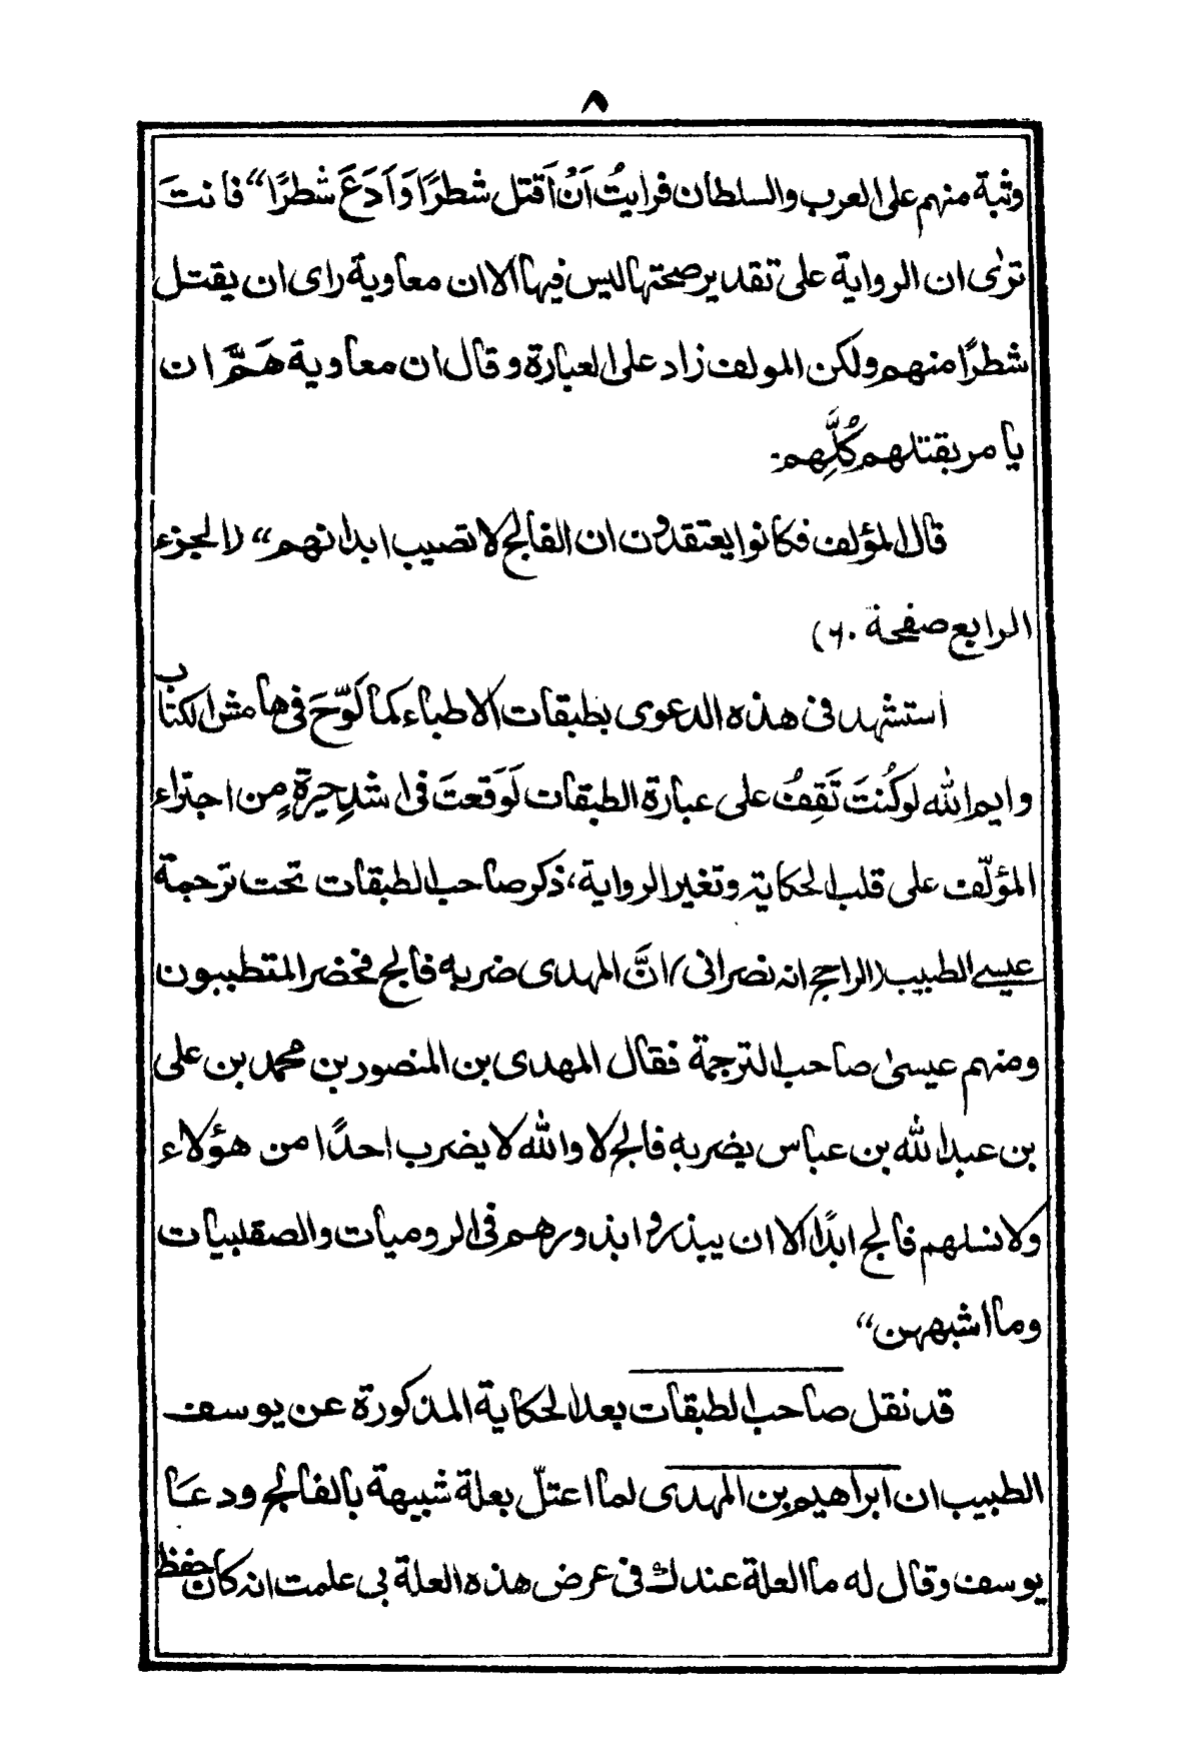 ٨
وثبة منهم على العرب والسلطان فرايتُ اَنْ اَقتل شطرًا وَاَدَعَ شطرًا“ فانتَ
ترٰى ان الرواية على تقدير صحتها ليس فيها الا ان معاوية راى ان يقتل
شطرًا منهم ولكن المولف زاد على العبارة وقال ان معاوية هَمَّ ان
يامر بقتلهم كُلِّهم۔
قال المؤلف فكانوا يعتقدون ان الفالج لا تصيب ابدانهم“ (الجزء
الرابع صفحة ٦٠)
استشهد فى هذه الدعوى بطبقات الاطباء كما لَوَّحَ فى هامش الكتاب
وايم الله لو كُنتَ تَقِفُ على عبارة الطبقات لَوَقعتَ فى اشدِ حيرةٍ مِن اجتراء
المؤلّف على قلب الحكاية وتغير الرواية، ذكر صاحب الطبقات تحت ترجمة
عيسے الطبيب (الراجح انه نصرانى) انَّ المهدى ضربه فالج فحضر المتطببون
ومنهم عيسىٰ صاحب الترجمة فقال المهدى بن المنصور بن محمد بن على
بن عبد الله بن عباس يضربه فالج لا والله لا يضرب احدًا من هؤلاء
ولا نسلهم فالج ابدًا الا ان يبذروا بذورهم فى الروميات والصقلبيات
وما اشبههن“
قد نقل صاحب الطبقات بعد الحكاية المذكورة عن يوسف
الطبيب ان ابراهيم بن المهدى لما اعتلّ بعلة شبيهة بالفالج ودعا
يوسف وقال له ما العلة عندك فى عرض هذه العلة بى علمت انه كان حفظ